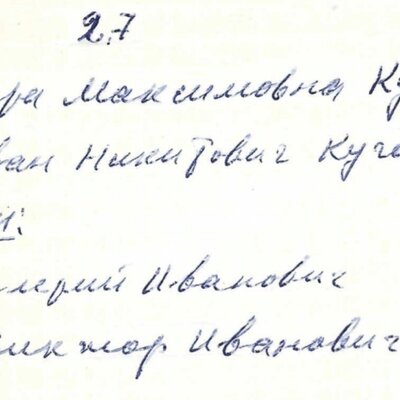 2.7
ра Максимовна Ку
ван Никитович Куче
и:
лерий Иванович
иктор Иванович